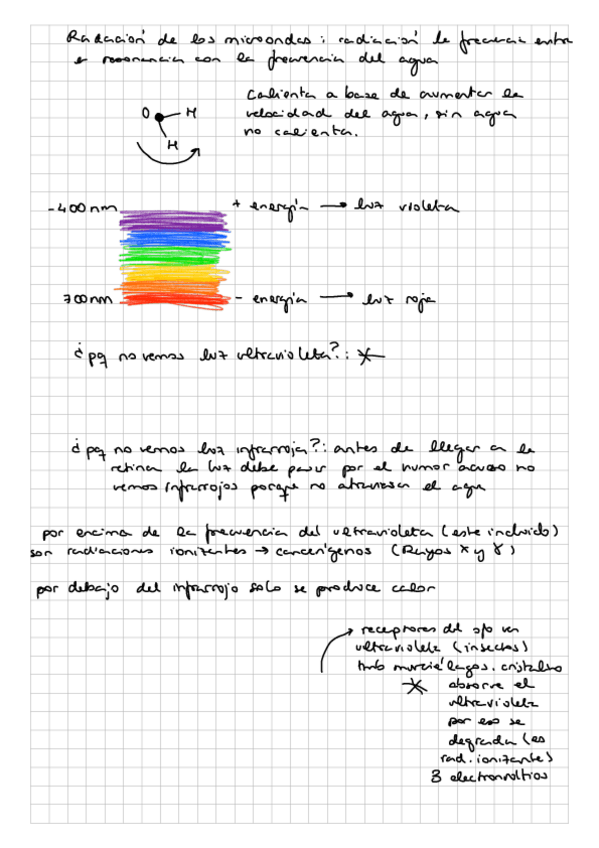 Radiación de los microondas: radiación la frecuencia entra
en resonancia con la frecuencia del agua
Calienta a base de aumentar la
velocidad del agua, sin agua
no calienta.
O H
H
-400nm + energía → luz violeta
700nm - energía → luz roja
¿pq no vemos luz ultravioleta?: *
¿pq no vemos luz infrarroja?: antes de llegar a la
retina la luz debe pasar por el humor acuoso no
vemos infrarrojos porque no atraviesa el agua
por encima de la frecuencia del ultravioleta (este incluido)
son radiaciones ionizantes → cancerígenos (Rayos x y γ)
por debajo del infrarrojo solo se produce calor
receptores del ojo ven
ultravioleta (insectos)
tmb murciélagos. cristalino
* absorve el
ultravioleta
por eso se
degrada (es
rad. ionizante)
electronvoltios